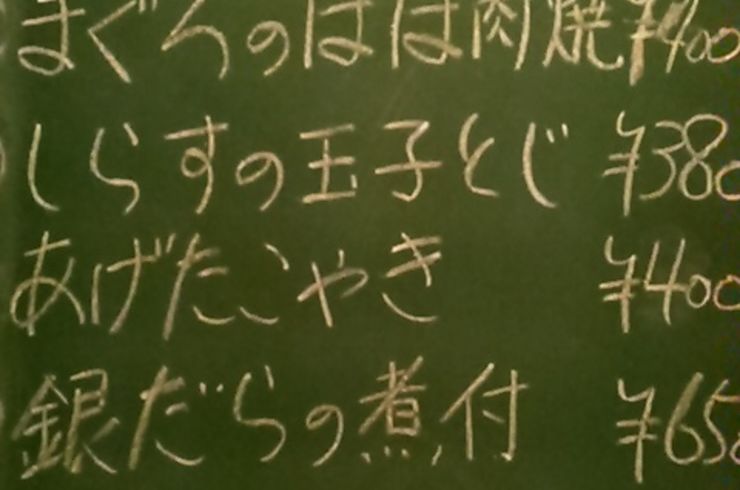 まぐろのほほ肉焼 ¥400
しらすの玉子とじ ¥380
あげたこやき ¥400
銀だらの煮付 ¥650